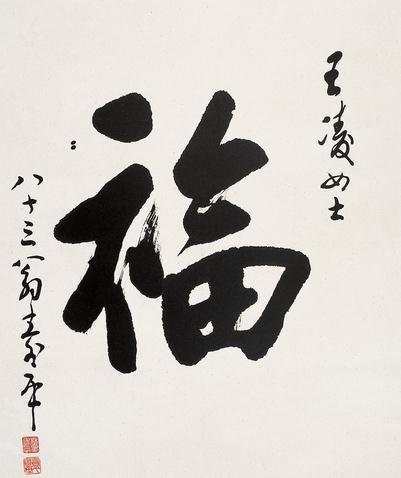 王凌女士
福
八十三翁壽平